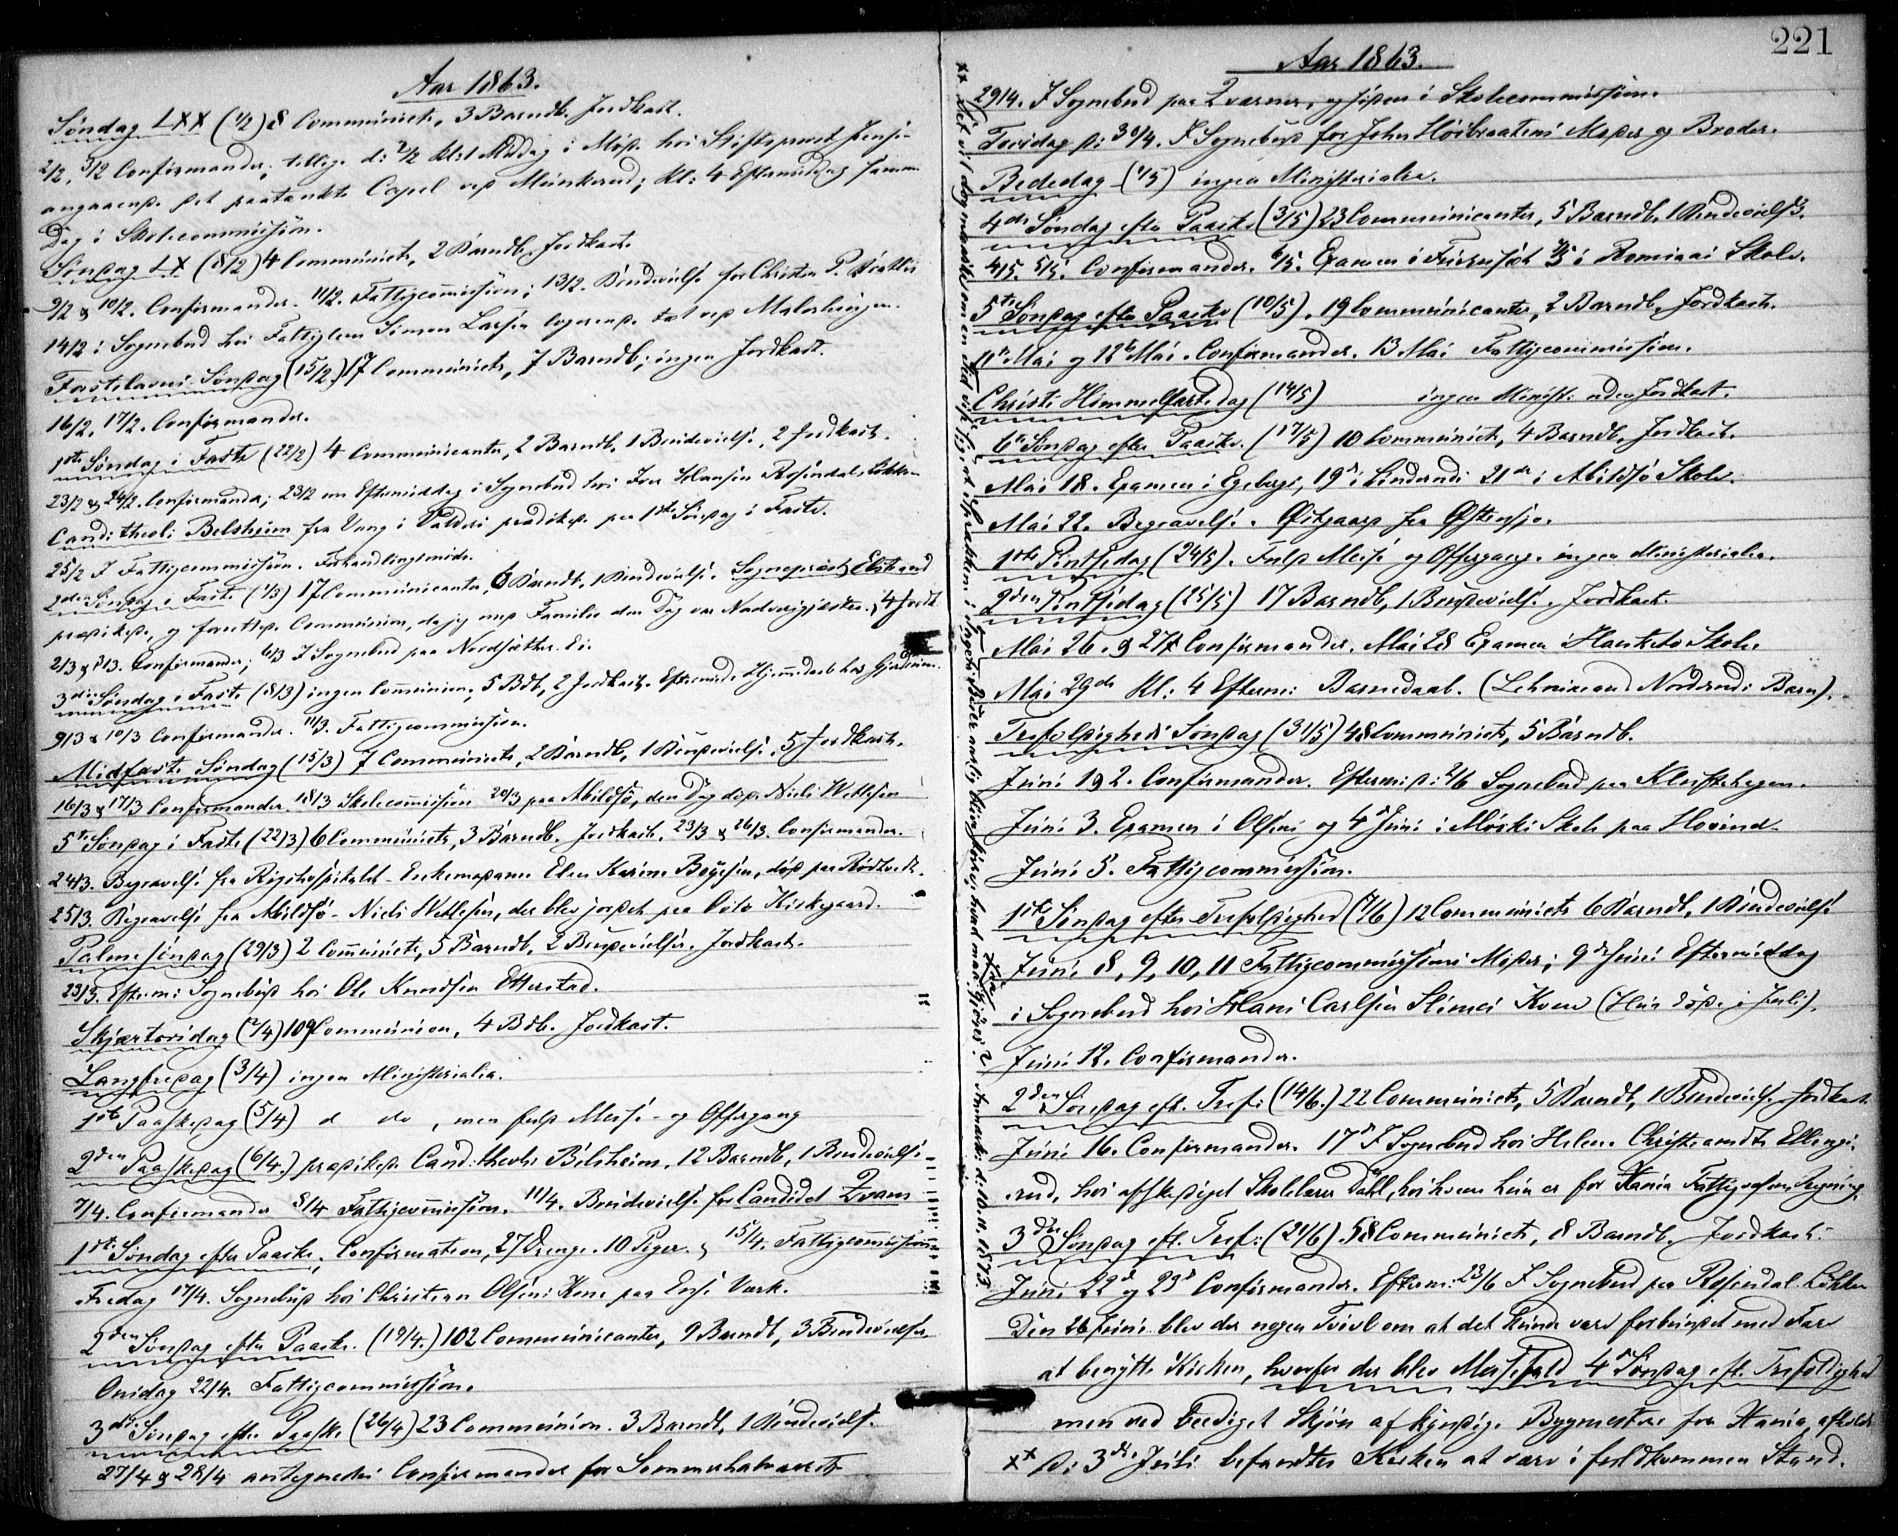 Aar 1863.
Søndag LXX (1/2) 8 Communicts, 3 Barndb. Jordkast.
2/2, 3/2 Confirmander; tillige d: 2/2 Kl: 1 Middag i Møde hos Stiftsprovst
angaaende det paatænkte Capel ved Munkerud; Kl: 4 Eftermiddag samme
Dag i Skolecommission.
Søndag LX (8/2) 4 Communicts, 2 Barndb. Jordkast.
9/2 & 10/2. Confirmander. 11/2. Fattigcommission; 13/2. Brudevielse for Christen P.
14/2 i Sognebud hos Fattiglem Simen Larsen
Fastelavns Søndag (15/2) 17 Communicts, 7 Barndb; ingen Jordkast.
16/2, 17/2. Confirmander.
1ste Søndag i Faste (22/2) 4 Communicanter, 2 Barndb, 1 Brudevielse, 2 Jordkast.
23/2 & 24/2. Confirmander; 23/2 om Eftermiddag i Sognebud hos Iver Hansen Rosendalsløkken
Cand: theol: Belsheim fra Vang i Valders prædiked. paa 1ste Søndag i Faste.
25/2 I Fattigcommission. Forhandlingsmøde.
2den Søndag i Faste (1/3) 17 Communicanter, 6 Barndb, 1 Brudevielse. Sognepræst Ekstrand
prædiked., og forrettede Communion, da jeg med Familie den Dag var Nadvergjæster. 4 Jordk.
2/3 & 3/3. Confirmander; 6/3 I Sognebud paa Nordsæther Ei.
3die Søndag i Faste (8/3) ingen Communion, 5 Bdb, 2 Jordkast. Eftermid. Hjemmedaab hos
9/3 & 10/3 Confirmander. 11/3. Fattigcommission.
Midfaste Søndag (15/3) 7 Communicts, 2 Barndb, 1 Brudevielse. 5 Jordkast.
16/3 & 17/3 Confirmander 18/3 Skolecommission 20/3 paa Abildsø, den Dag døde Niels Wetlesen
5te Søndag i Faste (22/3) 6 Communicts, 3 Barndb. Jordkast. 23/3 & 26/3. Confirmander.
24/3. Begravelse fra Rigshospitalet - Enkemadame Elen Karine Boyesen, død paa Rødtvedt.
25/3. Begravelse fra Abildsø - Niels Wetlesen, der blev jordet paa Oslo Kirkegaard.
Palmesøndag (29/3) 2 Communicts, 5 Barndb, 2 Brudevielser. Jordkast.
23/3. Efterm: Sognebud hos Ole Knudsen Etterstad.
Skjærtorsdag (2/4) 109 Communion, 4 Bdb. Jordkast.
Langfredag (3/4) ingen Ministerialia.
1ste Paaskedag (5/4) d do, men fuld Messe - og Offergang
2den Paaskedag (6/4.) prædiked. Cand: theol: Belsheim. 12 Barndb, 1 Brudevielse
7/4. Confirmander 8/4 Fattigcommission. 11/4. Brudevielse for Candidat
1ste Søndag efter Paaske, Confirmation, 27 Drenge. 10 Piger. 15/4. Fattigcommission
Fredag 17/4. Sognebud hos Christian Olsens Kone paa Værk.
2den Søndag efter Paaske. (19/4.) 102 Communicanter, 9 Barndb, 3 Brudevielser.
Onsdag 22/4. Fattigcommission.
3die Søndag efter Paaske (26/4) 23 Communion. 3 Barndb, 1 Brudevielse.
27/4 & 28/4 antegnedes Confirmander for Sommerhalvaaret
221
Aar 1863.
29/4. I Sognebud paa, og siden i Skolecommission.
Torsdag d: 30/4. I Sognebud for John Hørbraatens Moder og Broder.
Bededag (1/5) ingen Ministerialia.
4de Søndag efter Paaske (3/5) 23 Communicanter, 5 Barndb. 1 Brudevielse.
4/5. 5/5. Confirmander. 6/5. Examen i 7/5 i Skole.
5te Søndag efter Paaske (10/5). 19 Communicanter, 2 Barndb, Jordkast.
11te Mai og 12te Mai. Confirmander. 13 Mai Fattigcommission.
Christi Himmelfartsdag (14/5) ingen Minist: uden Jordkast.
6te Søndag efter Paaske. (17/5) 10 Communicts, 4 Barndb, Jordkast.
Mai 18. Examen i Egeberg, 19de i Linderud: 21de i Abildsø Skole.
Mai 22. Begravelse. Østgaard fra Østensjø.
1ste Pintsedag (24/5). Fuld Messe og Offergang. ingen Ministerialia.
2den Pintsedag (25/5) 17 Barndb, 1 Brudevielse. Jordkast.
Mai 26. & 27de Confirmander. Mai 28 Examen i Hauketo Skole.
Mai 29de Kl: 4 Efterm: Barnedaab. (Lehnsmand Norderud: Barn).
Trefoldigheds Søndag (31/5) 48 Communicts, 5 Barndb.
Juni 1 & 2. Confirmander. Efterm: d: 2/6 Sognebud paa Klosterhagen.
Juni 3. Examen i Olsens og 4de Juni i Mørks Skole paa Hovind.
Juni 5. Fattigcommission.
1ste Søndag efter Trefoldighed (7/6) 12 Communicts 6 Barndb, 1 Brudevielse
Juni 8, 9, 10, 11 Fattigcommissions Møder; 9de Juni Eftermiddag
i Sognebud hos Hans Carlsen Slimes Kone (Hun døde i Juli).
Juni 12. Confirmander.
2den Søndag eft. Tref: (14/6.) 22 Communicts, 5 Barndb, 1 Brudevielse Jordkast.
Juni 16. Confirmander. 17de I Sognebud hos Helene Christiansdtr Ellings-
rud, hos afskediget Skolelærer Dahl, hos hvem hun er for Stania Fattigvæsens Regning.
3die Søndag eft. Tref: (21/6) 58 Communicts, 8 Barndb. Jordkast.
Juni 22de og 23de Confirmander. Efterm: 23/6 I Sognebud paa Rosendal-Løkken
Den 26 Juni blev der nogen Tvivl om at det kunde være forbundet med Fare
at benytte Kirken, hvorfor der blev Messefald 4de Søndag eft. Trefoldighed
men ved beediget Skjøn af kyndige Bygmestre fra Stania, afholdt
xx d: 3die Juli befandtes Kirken at være i fuldkommen Stand.
xx Det vil dog mærkes om en Tid viser sig, at Sprækken i blir større, hvad maa gjøres? Anmærk: d: 10. 11. 1873.